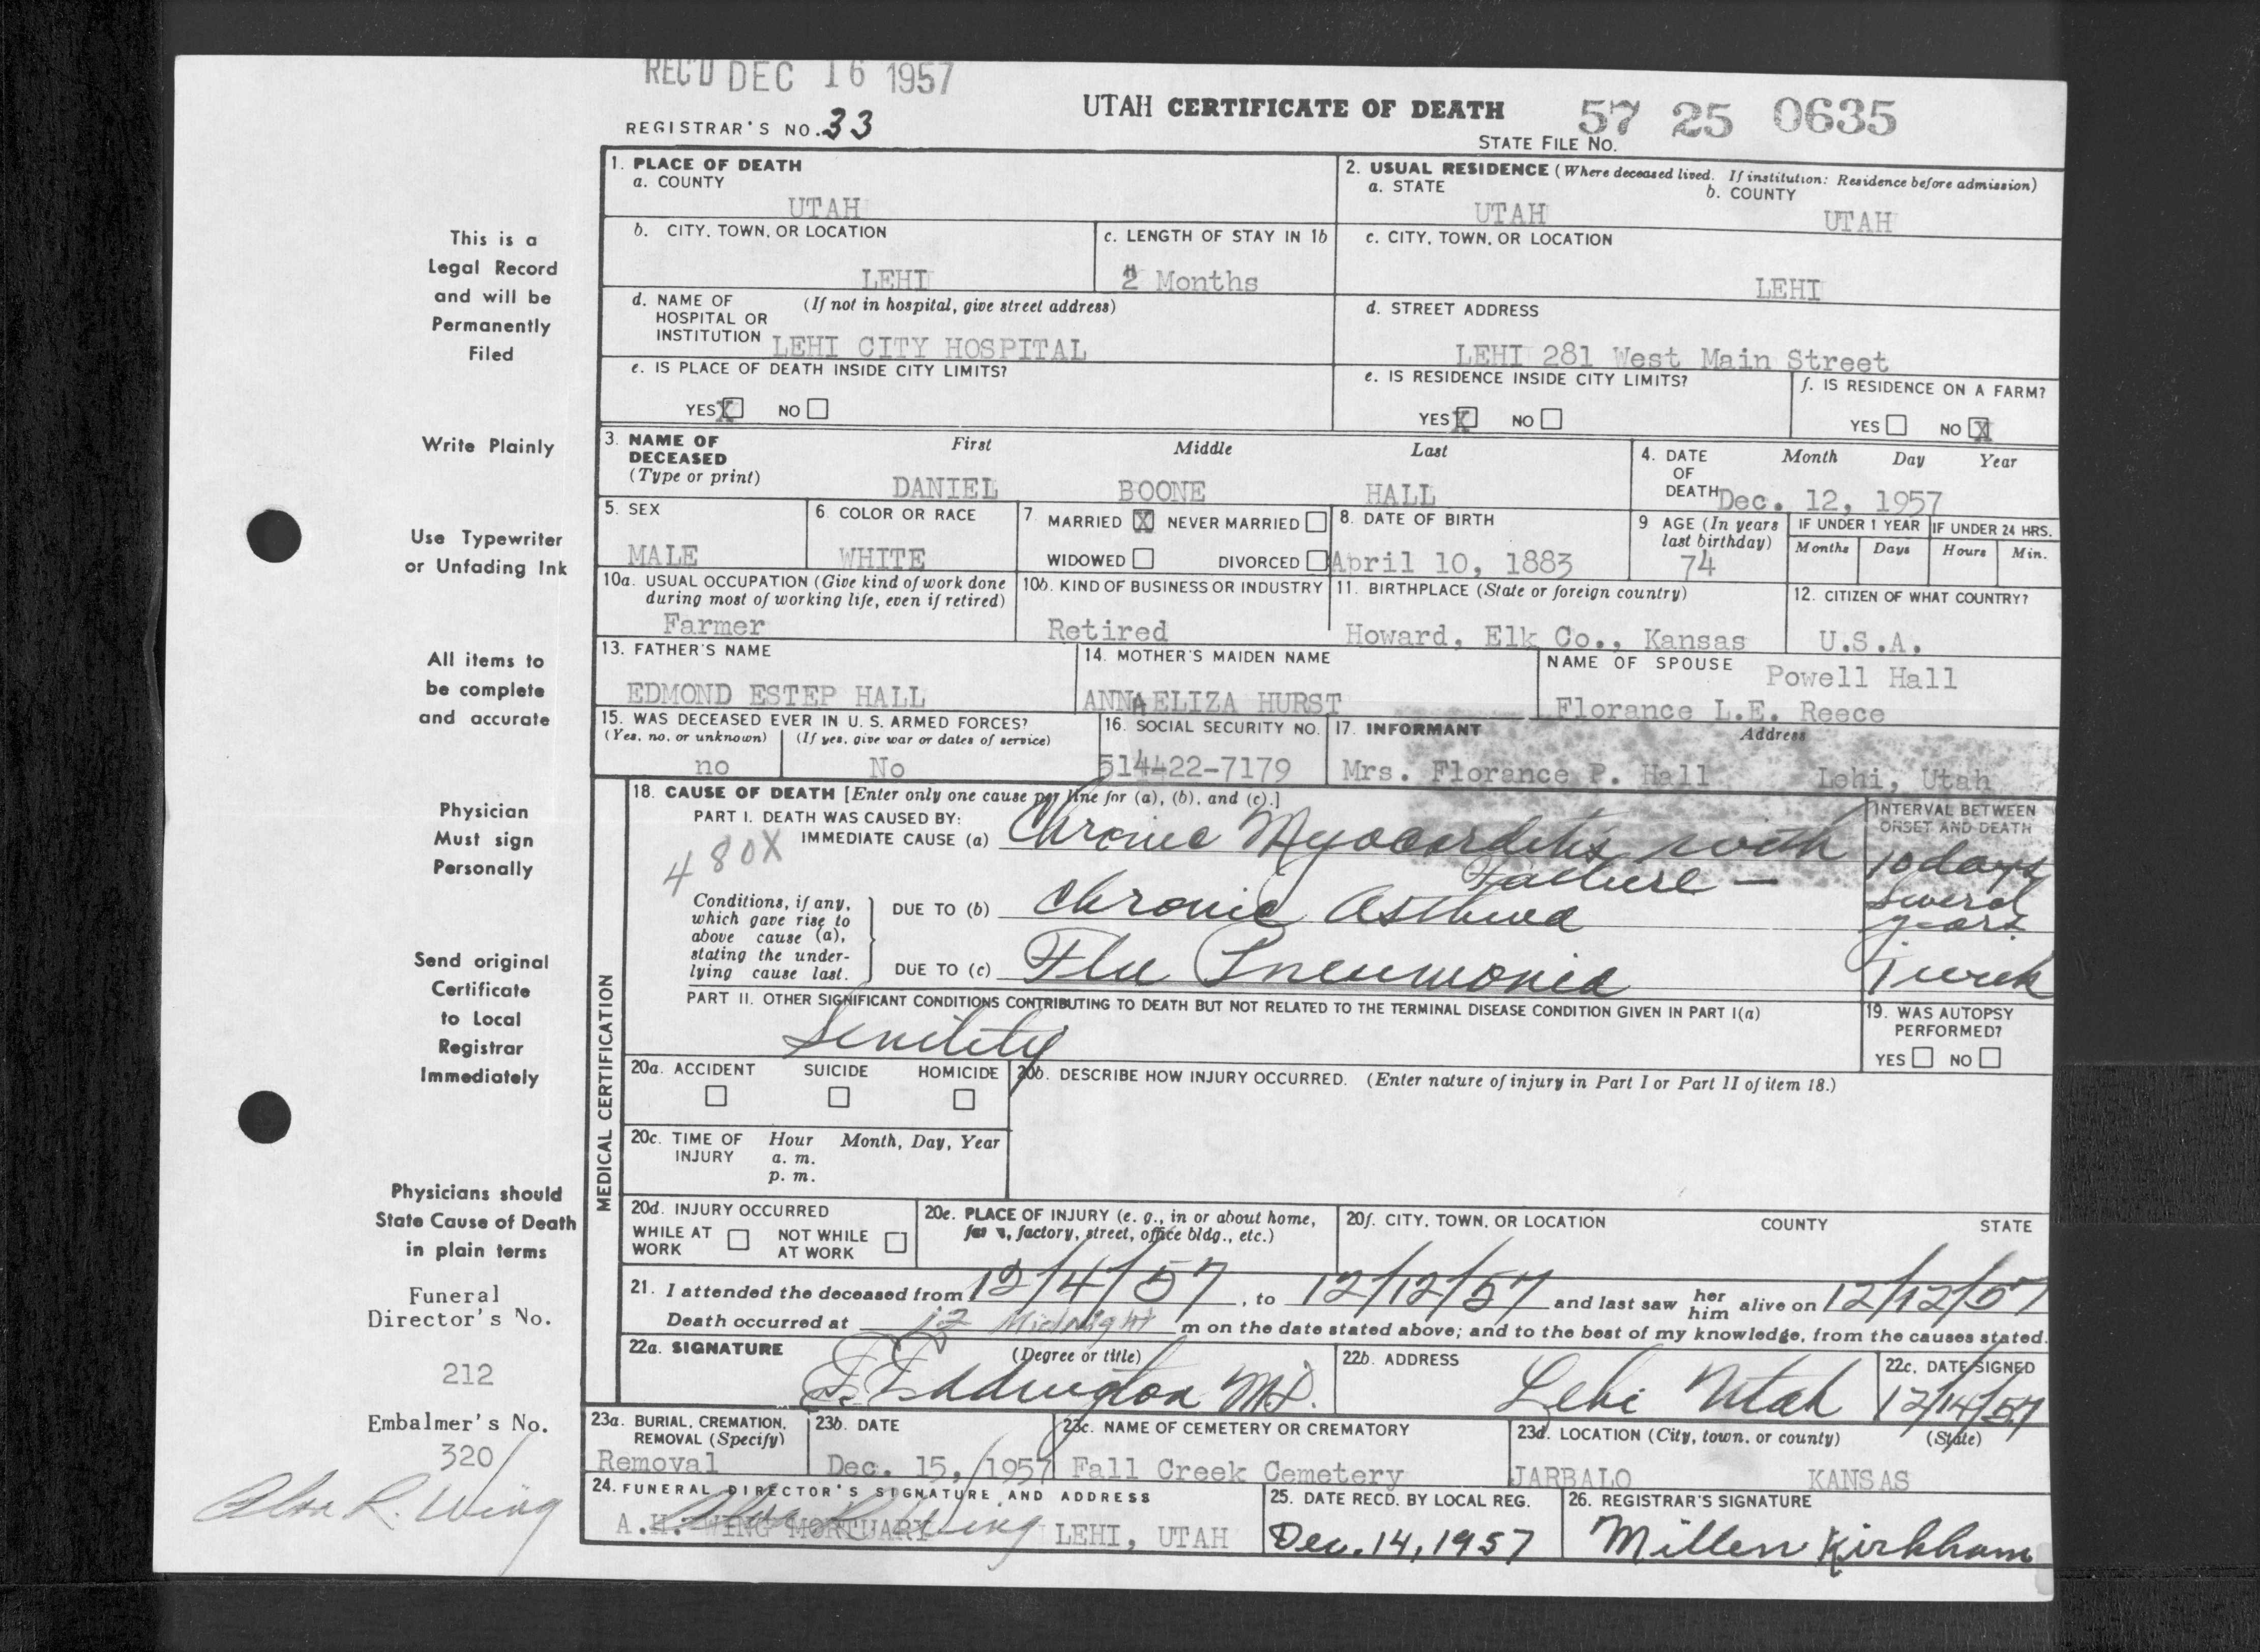 REC'D DEC 16 1957
UTAH CERTIFICATE OF DEATH 57 25 0635
REGISTRAR'S NO. 33
STATE FILE NO.
1. PLACE OF DEATH
a. COUNTY
UTAH
2. USUAL RESIDENCE (Where deceased lived. If institution: Residence before admission)
a. STATE b. COUNTY
UTAH UTAH
b. CITY, TOWN, OR LOCATION
LEHI
c. LENGTH OF STAY IN 1b
2 Months
c. CITY, TOWN, OR LOCATION
LEHI
d. NAME OF (If not in hospital, give street address)
HOSPITAL OR
INSTITUTION LEHI CITY HOSPITAL
d. STREET ADDRESS
LEHI 281 West Main Street
e. IS PLACE OF DEATH INSIDE CITY LIMITS?
YES X NO
e. IS RESIDENCE INSIDE CITY LIMITS?
YES X NO
f. IS RESIDENCE ON A FARM?
YES NO X
3. NAME OF DECEASED First Middle Last
(Type or print) DANIEL BOONE HALL
4. DATE OF DEATH Month Day Year
Dec. 12, 1957
5. SEX
MALE
6. COLOR OR RACE
WHITE
7. MARRIED X NEVER MARRIED
WIDOWED DIVORCED
8. DATE OF BIRTH
April 10, 1883
9 AGE (In years last birthday)
74
IF UNDER 1 YEAR IF UNDER 24 HRS.
Months Days Hours Min.
10a. USUAL OCCUPATION (Give kind of work done
during most of working life, even if retired)
Farmer
10b. KIND OF BUSINESS OR INDUSTRY
Retired
11. BIRTHPLACE (State or foreign country)
Howard, Elk Co., Kansas
12. CITIZEN OF WHAT COUNTRY?
U.S.A.
13. FATHER'S NAME
EDMOND ESTEP HALL
14. MOTHER'S MAIDEN NAME
ANNA ELIZA HURST
NAME OF SPOUSE Powell Hall
Florance L.E. Reece
15. WAS DECEASED EVER IN U. S. ARMED FORCES?
(Yes, no, or unknown) (If yes, give war or dates of service)
no No
16. SOCIAL SECURITY NO.
514-22-7179
17. INFORMANT Address
Mrs. Florance P. Hall Lehi, Utah
MEDICAL CERTIFICATION
18. CAUSE OF DEATH [Enter only one cause per line for (a), (b), and (c).]
INTERVAL BETWEEN
ONSET AND DEATH
PART I. DEATH WAS CAUSED BY:
IMMEDIATE CAUSE (a) Chronic Myocarditis with
Failure —
10 days
480X
Conditions, if any,
which gave rise to
above cause (a),
stating the under-
lying cause last.
DUE TO (b) Chronic Asthma
several
years
DUE TO (c) Flu Pneumonia
1 week
PART II. OTHER SIGNIFICANT CONDITIONS CONTRIBUTING TO DEATH BUT NOT RELATED TO THE TERMINAL DISEASE CONDITION GIVEN IN PART I(a)
Senility
19. WAS AUTOPSY
PERFORMED?
YES NO
20a. ACCIDENT SUICIDE HOMICIDE
20b. DESCRIBE HOW INJURY OCCURRED. (Enter nature of injury in Part I or Part II of item 18.)
20c. TIME OF INJURY Hour Month, Day, Year
a. m.
p. m.
20d. INJURY OCCURRED
WHILE AT WORK NOT WHILE AT WORK
20e. PLACE OF INJURY (e. g., in or about home,
farm, factory, street, office bldg., etc.)
20f. CITY, TOWN, OR LOCATION COUNTY STATE
21. I attended the deceased from 12/4/57, to 12/12/57 and last saw her him alive on 12/12/57
Death occurred at 12 Midnight m on the date stated above; and to the best of my knowledge, from the causes stated.
22a. SIGNATURE (Degree or title)
Eddington MD.
22b. ADDRESS
Lehi Utah
22c. DATE SIGNED
12/14/57
23a. BURIAL, CREMATION,
REMOVAL (Specify)
Removal
23b. DATE
Dec. 15, 1957
23c. NAME OF CEMETERY OR CREMATORY
Fall Creek Cemetery
23d. LOCATION (City, town, or county) (State)
JARBALO KANSAS
24. FUNERAL DIRECTOR'S SIGNATURE AND ADDRESS
A.H. WING MORTUARY LEHI, UTAH
25. DATE RECD. BY LOCAL REG.
Dec. 14, 1957
26. REGISTRAR'S SIGNATURE
Millen Kirkham
This is a
Legal Record
and will be
Permanently
Filed
Write Plainly
Use Typewriter
or Unfading Ink
All items to
be complete
and accurate
Physician
Must sign
Personally
Send original
Certificate
to Local
Registrar
Immediately
Physicians should
State Cause of Death
in plain terms
Funeral
Director's No.
212
Embalmer's No.
320
R. Wing